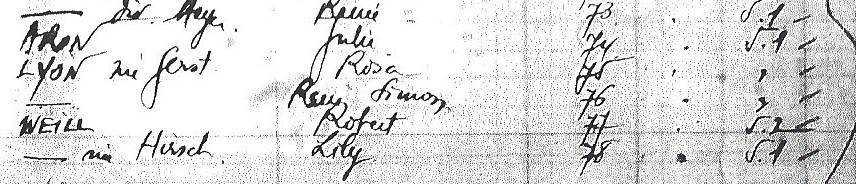 — div. Mayer. Renée 73 S.1 —
ARON Julie 74 . S.1 —
LYON née Gerst Rosa 75 . " —
— René Simon 76 . " —
WEILL Robert 77 . S.2 —
— née Hirsch. Lily 78 . S.1 —